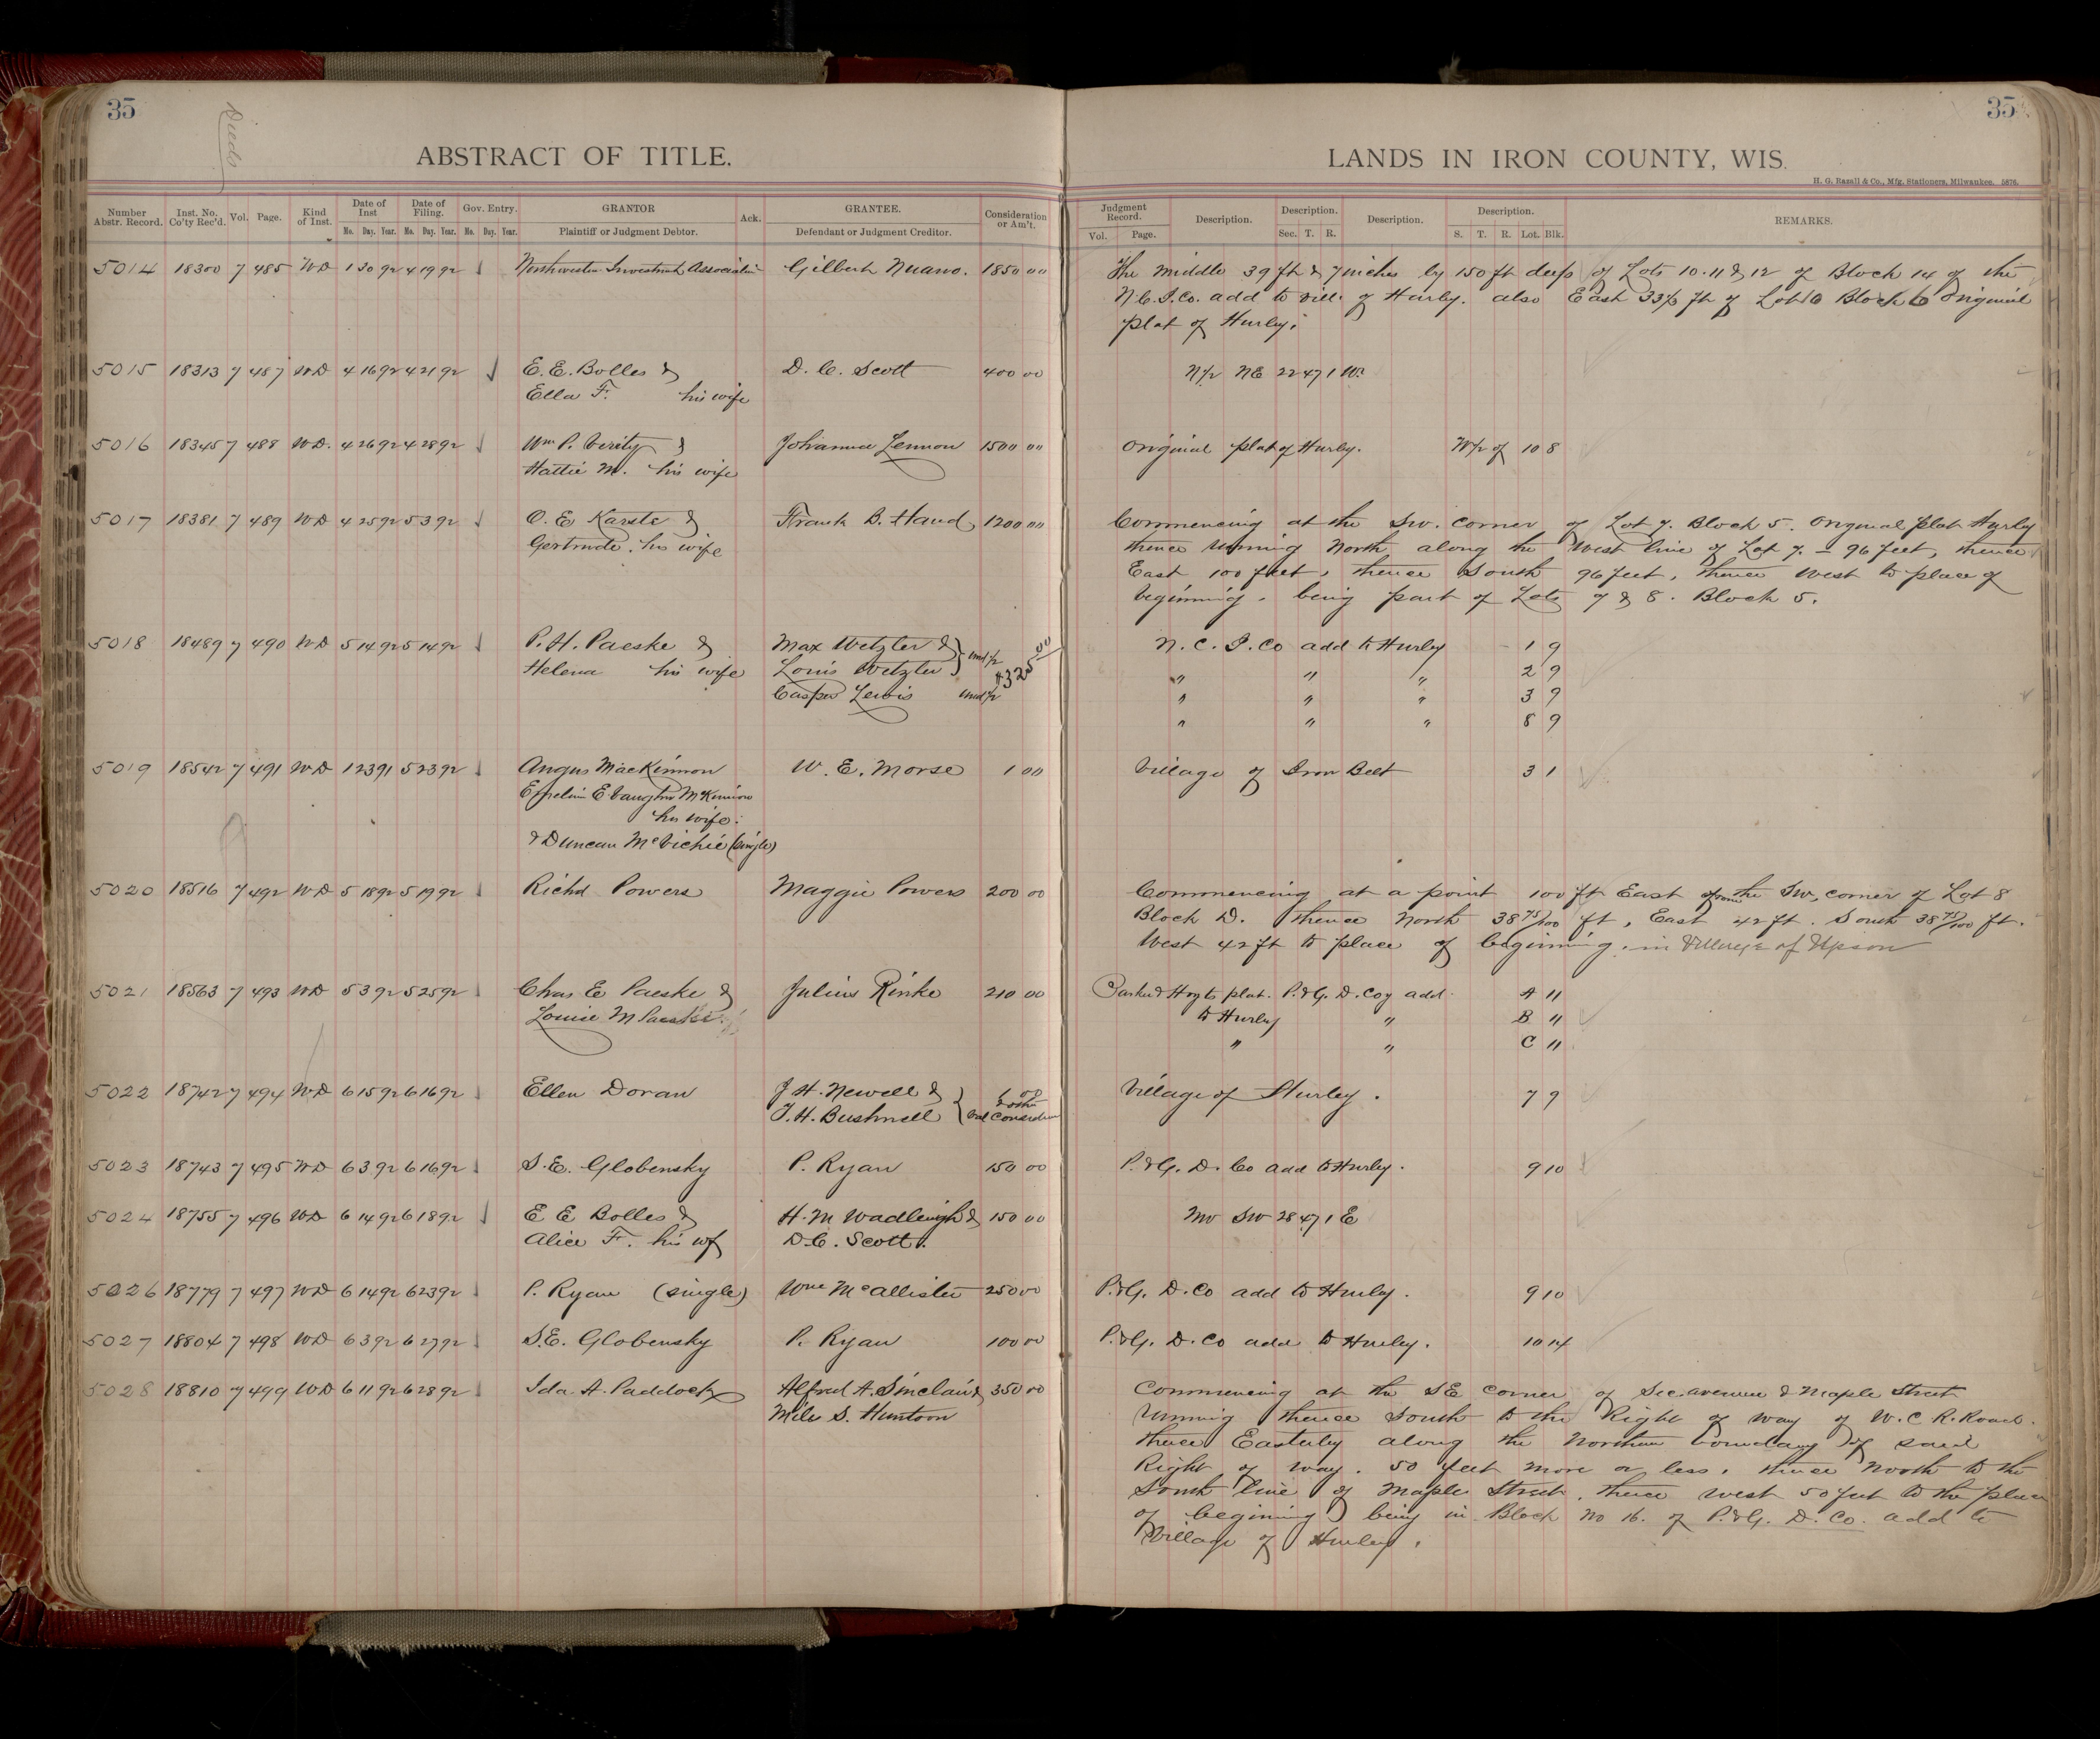 35
Deeds
ABSTRACT OF TITLE.
Number Abstr. Record. Inst. No. Co'ty Rec'd. Vol. Page. Kind of Inst. Date of Inst Mo. Day. Year. Date of Filing. Mo. Day. Year. Gov. Entry. No. Day. Year. GRANTOR Plaintiff or Judgment Debtor. Ack. GRANTEE. Defendant or Judgment Creditor. Consideration or Am't.
5014 18300 7 485 WD 1 30 92 4 19 92 Northwestern Investment Association Gilbert 1850 00
5015 18313 7 487 WD 4 16 92 4 21 92 E. E. Bolles & D. C. Scott 400 00
Ella F. his wife
5016 18345 7 488 WD. 4 26 92 4 28 92 Wm P. Verity & Johanna Lennon 1500 00
Hattie M. his wife
5017 18381 7 489 WD 4 25 92 5 3 92 O. E. Karste & Frank B. Hand 1200 00
Gertrude. his wife
5018 18489 7 490 WD 5 14 92 5 14 92 P. H. Paeske & Max Wetzler & } und 1/2
Helena his wife Louis Wetzler 4325 00
Casper Lewis und 1/2
5019 18542 7 491 WD 1 23 91 5 23 92 Angus MacKinnon W. E. Morse 1 00
E. Vaughn McKinnon
his wife.
& Duncan McVichie (single)
5020 18516 7 492 WD 5 18 92 5 19 92 Richd Powers Maggie Powers 200 00
5021 18563 7 493 WD 5 3 92 5 25 92 Chas E Paeske & Julius Rinke 210 00
Louise M Paeske.
5022 18742 7 494 WD 6 15 92 6 16 92 Ellen Doran J H. Newell & { 1 00
T. H. Bushnell & other Val Consideration
5023 18743 7 495 WD 6 3 92 6 16 92 S. E. Globensky P. Ryan 150 00
5024 18755 7 496 WD 6 14 92 6 18 92 E E Bolles & H. M Wadleigh & 150 00
Alice F. his wf D. C. Scott.
5026 18779 7 497 WD 6 14 92 6 23 92 P. Ryan (single) Wm McAllister 250 00
5027 18804 7 498 WD 6 3 92 6 27 92 S. E. Globensky P. Ryan 100 00
5028 18810 7 499 WD 6 11 92 6 28 92 Ida A. Paddock Alfred A. Sinclair & 350 00
Miles S. Huntoon
35
LANDS IN IRON COUNTY, WIS.
H. G. Razall & Co., Mfg. Stationers, Milwaukee. 5876.
Judgment Record. Vol. Page. Description. Description. Sec. T. R. Description. Description. S. T. R. Lot. Blk. REMARKS.
The middle 39 ft & 7 inches by 150 ft deep of Lots 10. 11 & 12 of Block 14 of the
N. C. I. Co. add to vill. of Hurley. also East 33 1/3 ft of Lot 16 Block 6 original
plat of Hurley.
N 1/2 NE 22 47 1 W.
Original plat of Hurley. W 1/2 of 10 8
Commencing at the SW. corner of Lot 7. Block 5. Original plat Hurley
thence running North along the West line of Lot 7. – 96 feet, thence
East 100 feet, thence South 96 feet, thence West to place of
beginning. being part of Lots 7 & 8. Block 5.
N. C. I. Co add to Hurley 1 9
" " " 2 9
" " " 3 9
" " " 8 9
Village of Iron Belt 3 1
Commencing at a point 100 ft East from the SW. corner of Lot 8
Block D. thence North 38 75/100 ft, East 42 ft. South 38 75/100 ft.
West 42 ft to place of beginning. in Village of Upson
Parker & Hoyts plat. P. & G. D. Coy add. A 11
to Hurley " B 11
" " C 11
Village of Hurley. 7 9
P. & G. D. Co add to Hurley. 9 10
NW SW 28 47 1 E
P. & G. D. Co add to Hurley. 9 10
P. & G. D. Co add to Hurley. 10 14
Commencing at the SE corner of Sec. avenue & Maple Street
running thence South to the Right of way of W. C R. Road.
thence Easterly along the Northern boundary of said
Right of way. 50 feet more or less. thence North to the
South line of Maple Street. thence West 50 feet to the place
of begining being in Block No 16. of P. & G. D. Co. add to
Village of Hurley.